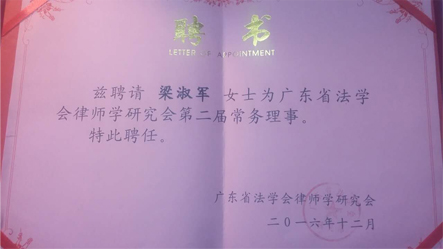 聘书
LETTER OF APPOINTMENT
兹聘请 梁淑军 女士为广东省法学
会律师学研究会第二届常务理事。
特此聘任。
广东省法学会律师学研究会
二〇一六年十二月